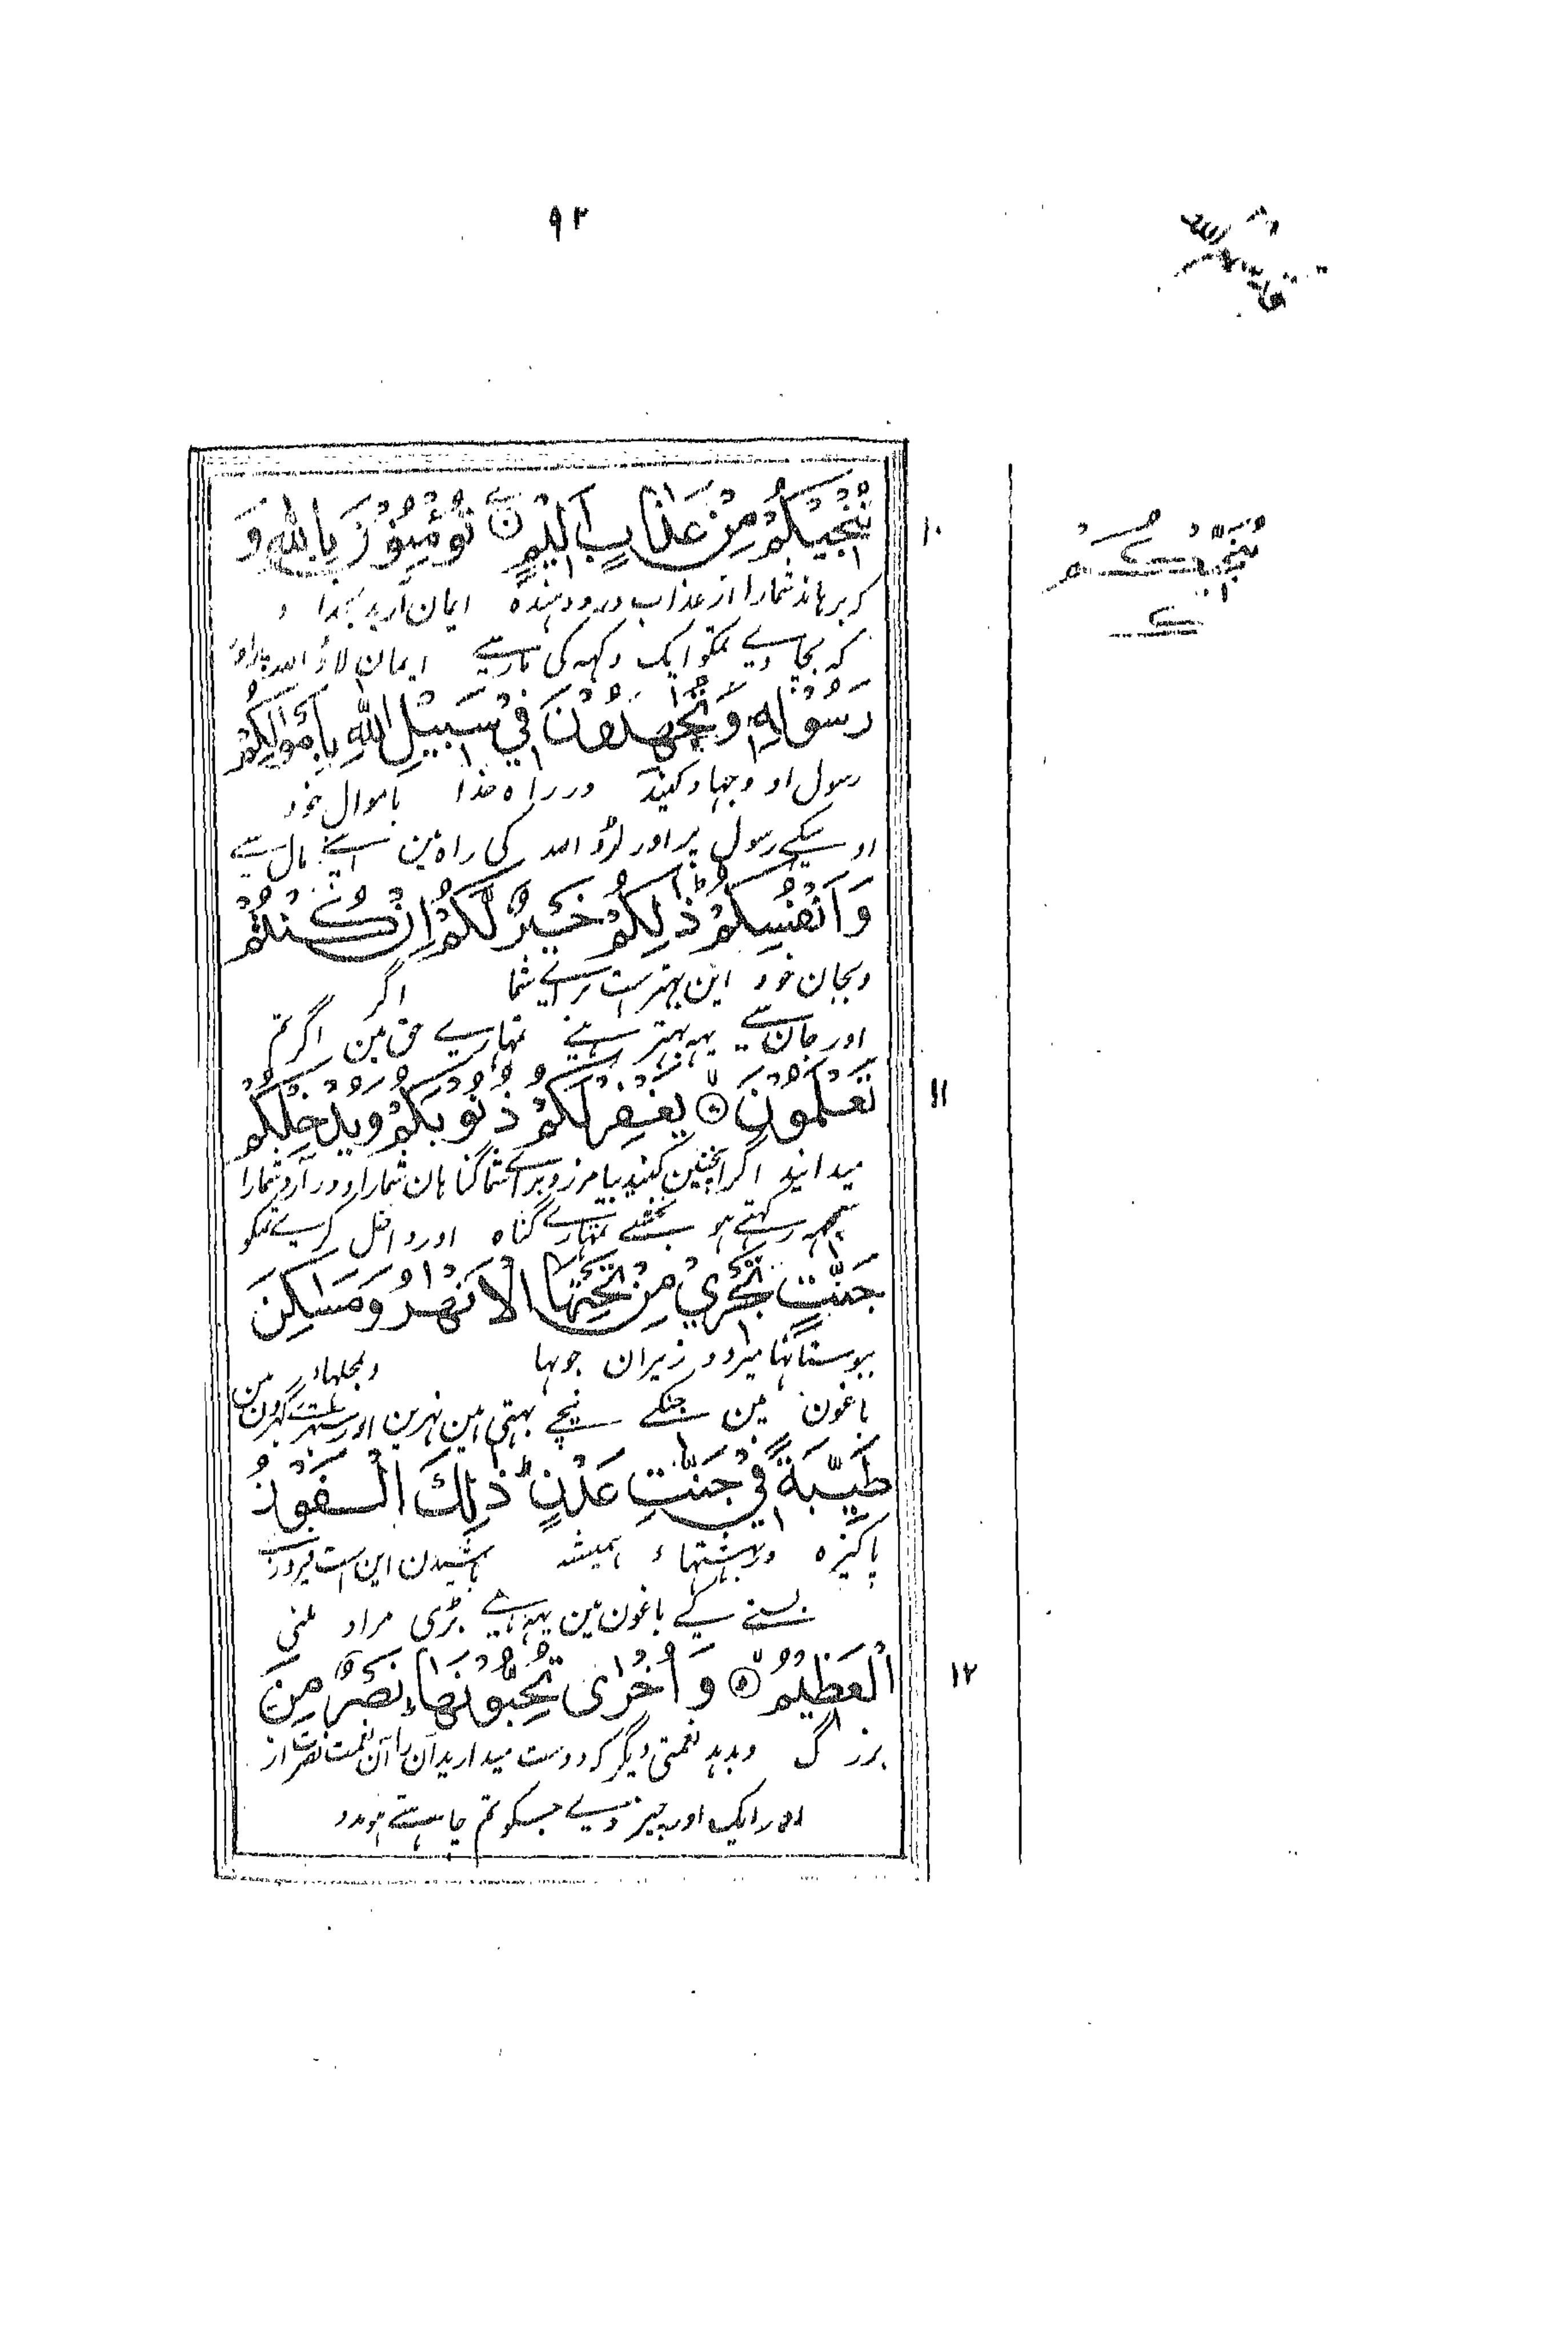 ۹۲
قد سمع اللہ ۲۸
تُنْجِيْكُمْ مِنْ عَذَابٍ اَلِيْمٍ تُؤْمِنُوْنَ بِاللّٰهِ وَ
۱۰
تُنَجِّيْكُمْ
کہ برہاند شمارا از عذاب درد دہندہ ایمان آرید بخدا و
کہ بچاوے تمکو ایک دکہہ کی مارسے ایمان لاؤ اللہ پر اور
رَسُوْلِهٖ وَتُجٰهِدُوْنَ فِيْ سَبِيْلِ اللّٰهِ بِاَمْوَالِكُمْ
رسول او وجہاد کنید در راہ خدا باموال خود
اوسکے رسول پر اور لڑو اللہ کی راہ مین اپنے مال سے
وَاَنْفُسِكُمْ ذٰلِكُمْ خَيْرٌ لَّكُمْ اِنْ كُنْتُمْ
وبجان خود این بہتر ست برائے شما اگر
اور جان سے یہہ بہتر ہے تمہارے حق مین اگر تم
تَعْلَمُوْنَ يَغْفِرْ لَكُمْ ذُنُوْبَكُمْ وَيُدْخِلْكُمْ
۱۱
میدانید اگر اینچنین کنید بیامرزد برائے شما گناہان شمارا و درآرد شمارا
سمجہہ رکہتے ہو بخشے تمہارے گناہ اور داخل کرے تمکو
جَنّٰتٍ تَجْرِيْ مِنْ تَحْتِهَا الْاَنْهٰرُ وَمَسٰكِنَ
ببوستانہا میرود زیر آن جوہا وبمحلہاء
باغون مین جنکے نیچے بہتی ہین نہرین اور ستہرے گہرون مین
طَيِّبَةً فِيْ جَنّٰتِ عَدْنٍ ذٰلِكَ الْفَوْزُ
پاکیزہ در بہشتہاء ہمیشہ باشیدن این است فیروزی
بسنے کے باغون مین یہہ ہے بڑی مراد ملنی
الْعَظِيْمُ وَاُخْرٰى تُحِبُّوْنَهَا نَصْرٌ مِنَ
۱۲
بزرگ وبدہد نعمتی دیگر کہ دوست میدارید آن را آن نعمت نصرت از
اور ایک اور چیز دے جسکو تم چاہتے ہو مدد